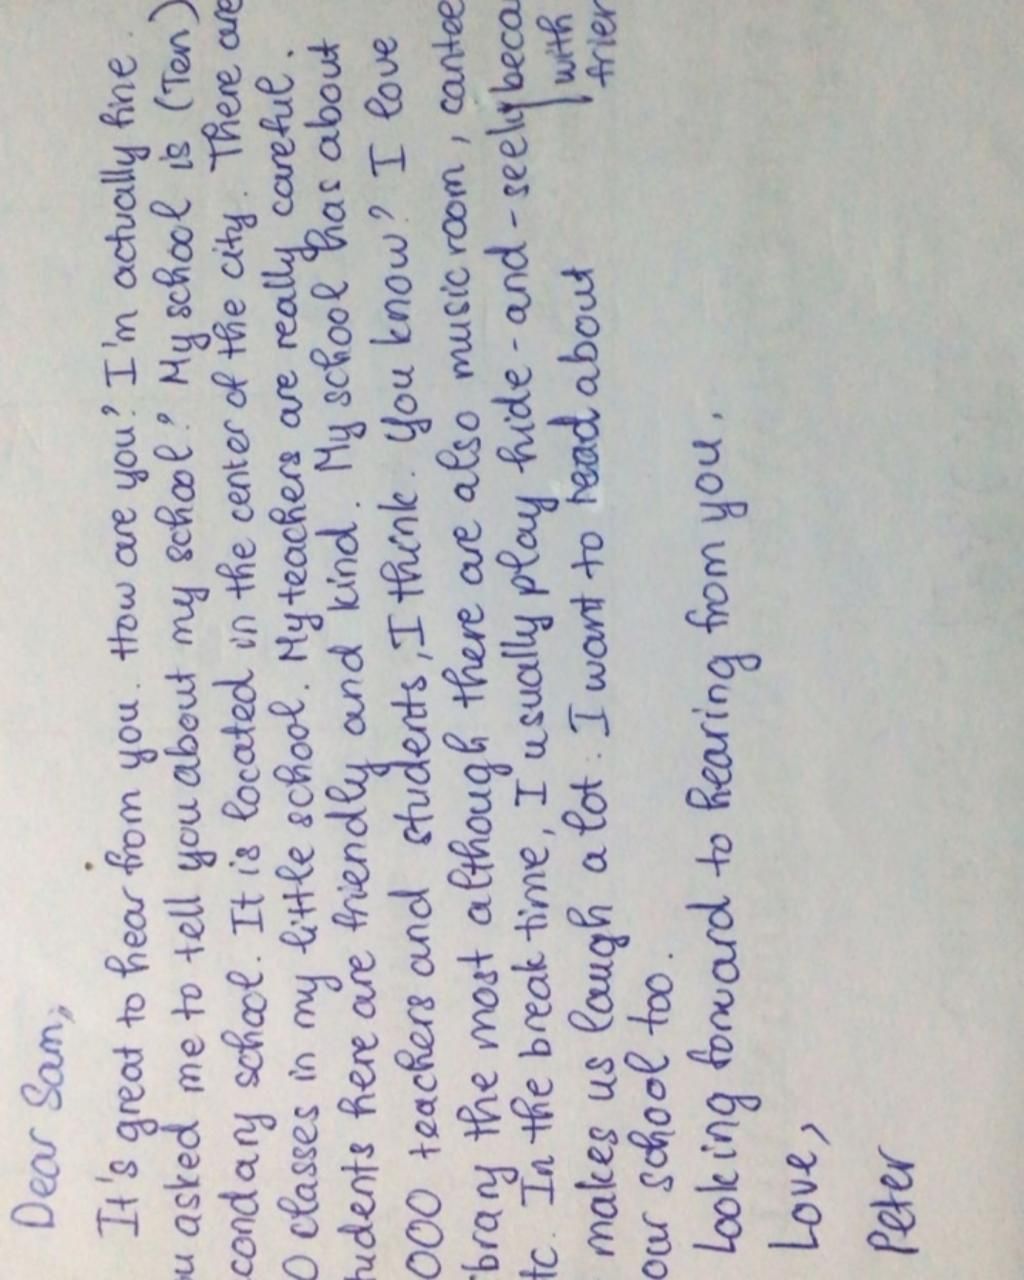 Dear Sam,
It's great to hear from you. How are you? I'm actually fine.
u asked me to tell you about my school? My school is (Ten)
condary school. It is located in the center of the city. There are
0 classes in my little school. My teachers are really careful.
udents here are friendly and kind. My school has about
000 teachers and students, I think. You know? I love
brary the most although there are also music room, cantee
tc. In the break time, I usually play hide-and-seek beca
with
frien
makes us laugh a lot. I want to read about
our school too.
Looking forward to hearing from you.
Love,
Peter